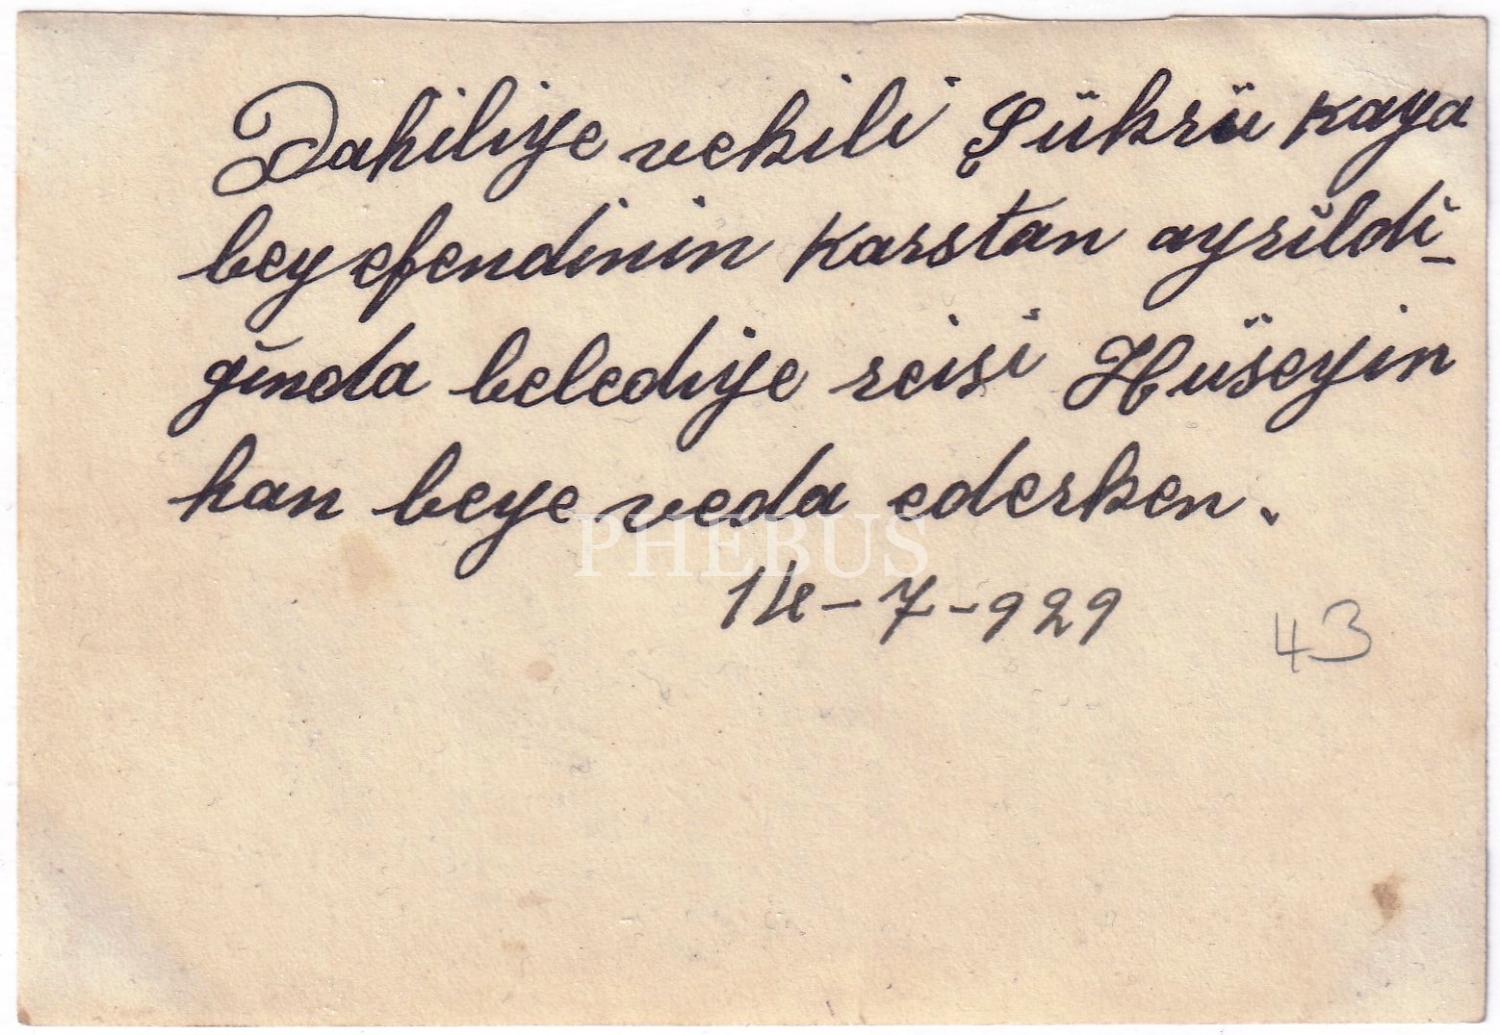 Dahiliye vekili Şükrü Kaya
bey efendinin Karstan ayrıldı-
ğında belediye reisi Hüseyin
han beye veda ederken.
PHEBUS
14-7-929
43